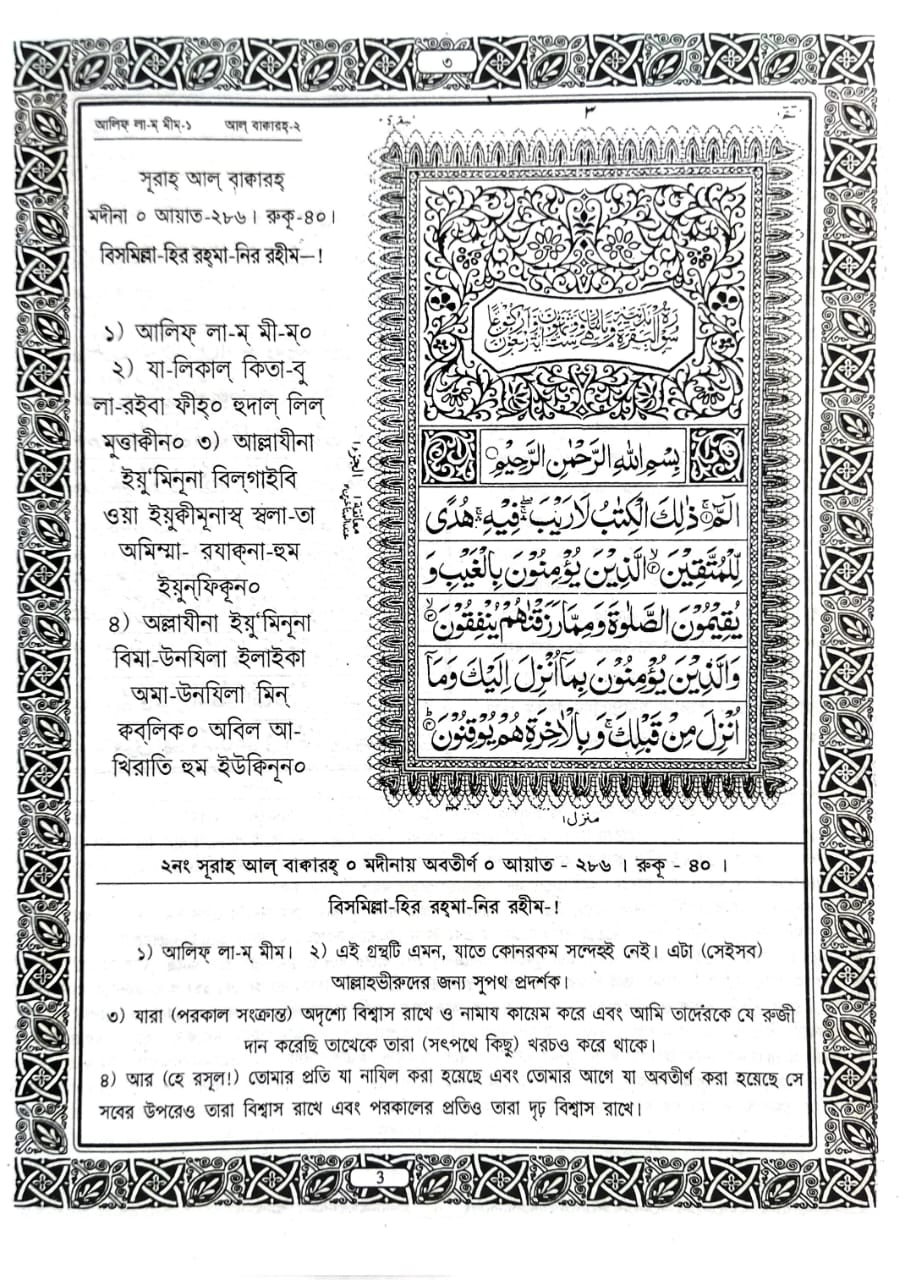 ৩
আলিফ্ লা-ম্ মীম্-১ আল্ বাক্বারহ্-২
٣
সূরাহ্ আল্ বাক্বারহ্
মদীনা ০ আয়াত-২৮৬। রুকূ-৪০।
বিসমিল্লা-হির রহ্‌মা-নির রহীম—!
১) আলিফ্ লা-ম্ মী-ম্০
২) যা-লিকাল্ কিতা-বু
লা-রইবা ফীহ্০ হুদাল্ লিল্
মুত্তাক্বীন০ ৩) আল্লাযীনা
ইয়ু‘মিনূনা বিল্‌গাইবি
ওয়া ইয়ুক্বীমূনাস্ব স্বলা-তা
অমিম্মা- রযাক্বনা-হুম
ইয়ুন্‌ফিক্বূন০
৪) অল্লাযীনা ইয়ু‘মিনূনা
বিমা-উনযিলা ইলাইকা
অমা-উনযিলা মিন্
ক্বব্‌লিক০ অবিল আ-
খিরাতি হুম ইউক্বিনূন০
بِسْمِ اللهِ الرَّحْمٰنِ الرَّحِيْمِ
الٓمّٓ ۚ ذٰلِكَ الْكِتٰبُ لَا رَيْبَ ۛ فِيْهِ ۛ هُدًى
لِّلْمُتَّقِيْنَ ۙ الَّذِيْنَ يُؤْمِنُوْنَ بِالْغَيْبِ وَ
يُقِيْمُوْنَ الصَّلٰوةَ وَمِمَّا رَزَقْنٰهُمْ يُنْفِقُوْنَ ۙ
وَالَّذِيْنَ يُؤْمِنُوْنَ بِمَآ اُنْزِلَ اِلَيْكَ وَمَآ
اُنْزِلَ مِنْ قَبْلِكَ ۚ وَبِالْاٰخِرَةِ هُمْ يُوْقِنُوْنَ ؕ
منزل ١
২নং সূরাহ্ আল্ বাক্বারহ্ ০ মদীনায় অবতীর্ণ ০ আয়াত - ২৮৬ । রুকূ - ৪০ ।
বিসমিল্লা-হির রহ্‌মা-নির রহীম-!
১) আলিফ্ লা-ম্ মীম। ২) এই গ্রন্থটি এমন, যাতে কোনরকম সন্দেহই নেই। এটা (সেইসব)
আল্লাহভীরুদের জন্য সুপথ প্রদর্শক।
৩) যারা (পরকাল সংক্রান্ত) অদৃশ্যে বিশ্বাস রাখে ও নামায কায়েম করে এবং আমি তাদেরকে যে রুজী
দান করেছি তাথেকে তারা (সৎপথে কিছু) খরচও করে থাকে।
৪) আর (হে রসূল!) তোমার প্রতি যা নাযিল করা হয়েছে এবং তোমার আগে যা অবতীর্ণ করা হয়েছে সে
সবের উপরেও তারা বিশ্বাস রাখে এবং পরকালের প্রতিও তারা দৃঢ় বিশ্বাস রাখে।
3